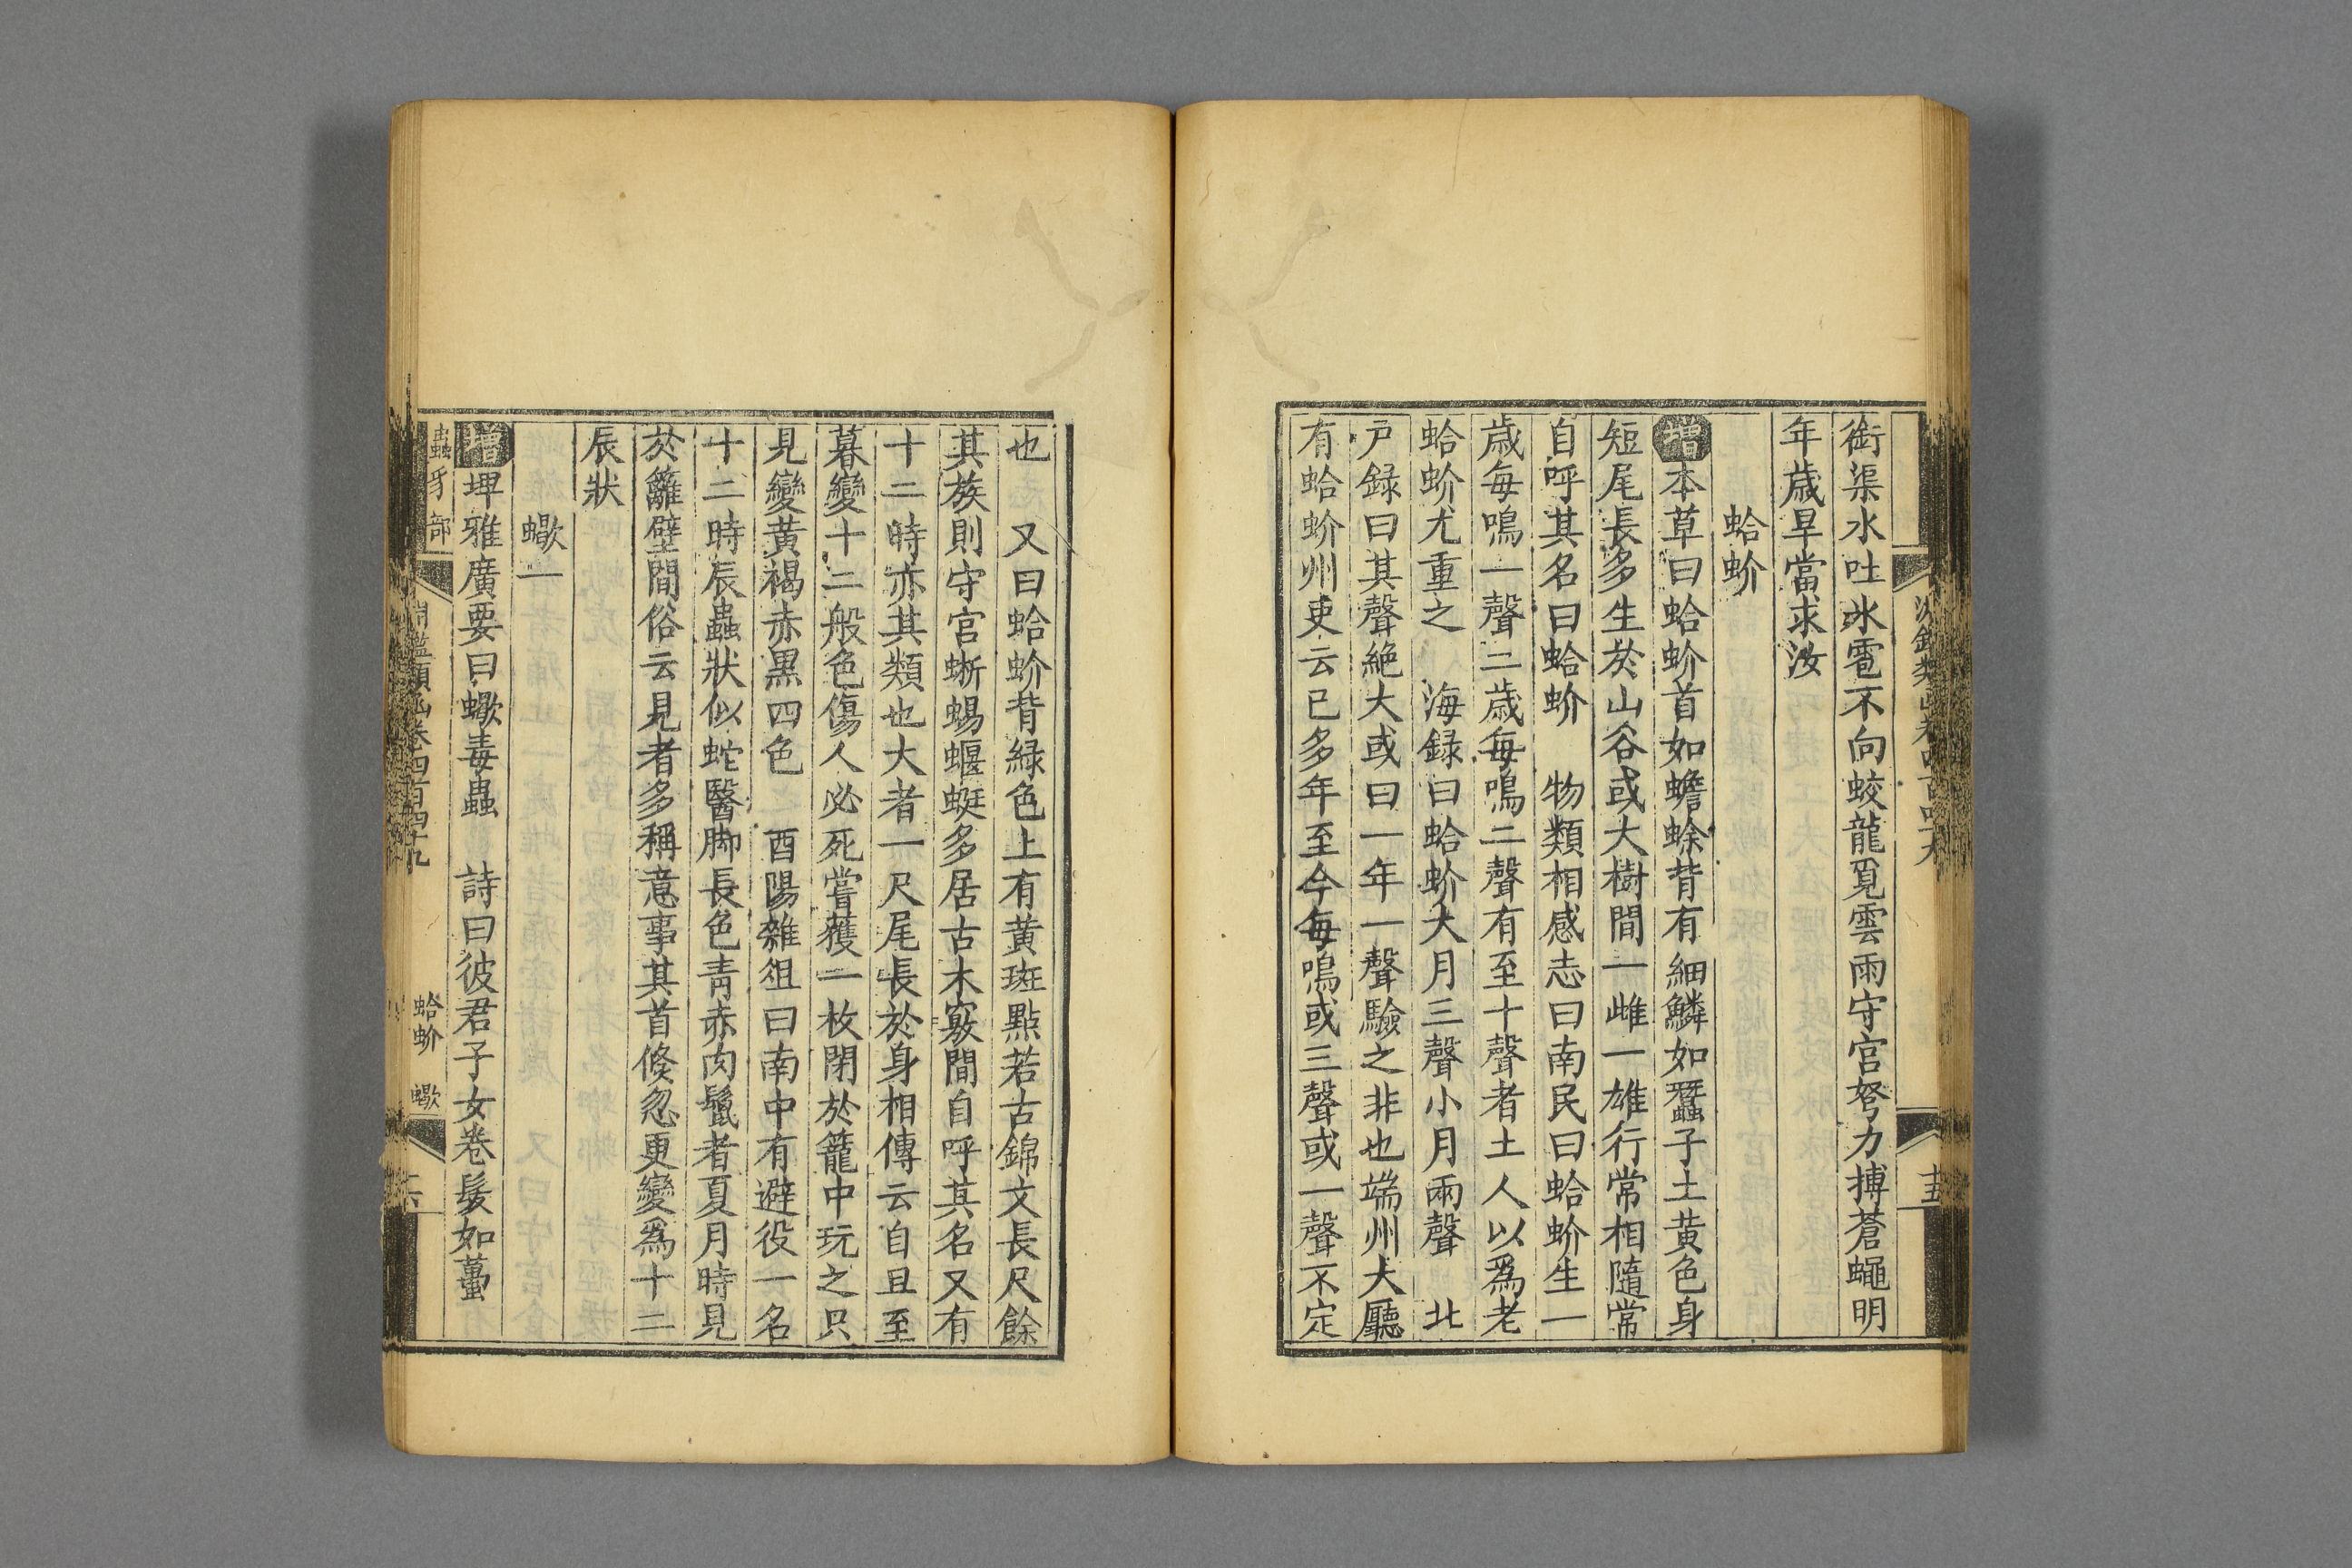 銜渠水吐氷雹不向蛟龍覓雲雨守宮努力搏蒼蠅明
年歲旱當求汝
蛤蚧
增本草曰蛤蚧首如蟾蜍背有細鱗如蠶子土黃色身
短尾長多生於山谷或大樹間一雌一雄行常相隨常
自呼其名曰蛤蚧 物類相感志曰南民曰蛤蚧生一
歲每鳴一聲二歲每鳴二聲有至十聲者土人以爲老
蛤蚧尤重之 海録曰蛤蚧大月三聲小月兩聲 北
戸録曰其聲絶大或曰一年一聲驗之非也端州大廳
有蛤蚧州吏云已多年至今每鳴或三聲或一聲不定
也 又曰蛤蚧背緑色上有黃斑點若古錦文長尺餘
其族則守宮蜥蜴蝘蜓多居古木竅間自呼其名又有
十二時亦其類也大者一尺尾長於身相傳云自旦至
暮變十二般色傷人必死嘗獲一枚閉於籠中玩之只
見變黃褐赤黑四色 酉陽雜俎曰南中有避役一名
十二時辰蟲狀似蛇醫脚長色青赤肉鬣者夏月時見
於籬壁間俗云見者多稱意事其首倐忽更變爲十二
辰狀
蠍一
增埤雅廣要曰蠍毒蟲 詩曰彼君子女卷髮如蠆
蟲豸部
淵鑑類函卷四百四十九
蛤蚧 蠍